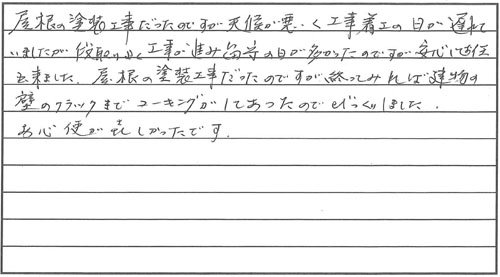 屋根の塗装工事だったのですが天候が悪く工事着工の日が遅れて
いましたが段取りよく工事が進み留守の日が多かったのですが安心して お任せ
出来ました。屋根の塗装工事だったのですが終ってみれば建物の
壁のクラックまでコーキングがしてあったのでびっくりしました。
お心使が嬉しかったです。